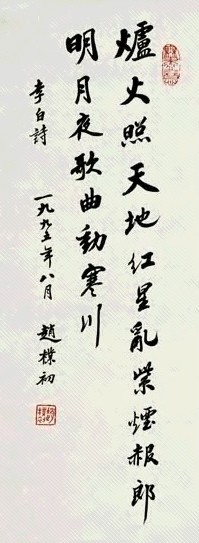 爐火照天地紅星亂紫煙赧郎
明月夜歌曲動寒川
李白詩
一九九五年八月 趙樸初